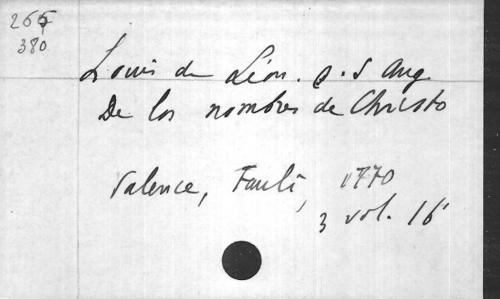 266
380
Louis de Léon. o. S Aug.
De los nombres de Christo
Valence, Fauli, 1770
3 vol. 16°